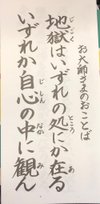 お大師さまのおことば
地獄はいずれの処にか在る
いずれか自心の中に観ん